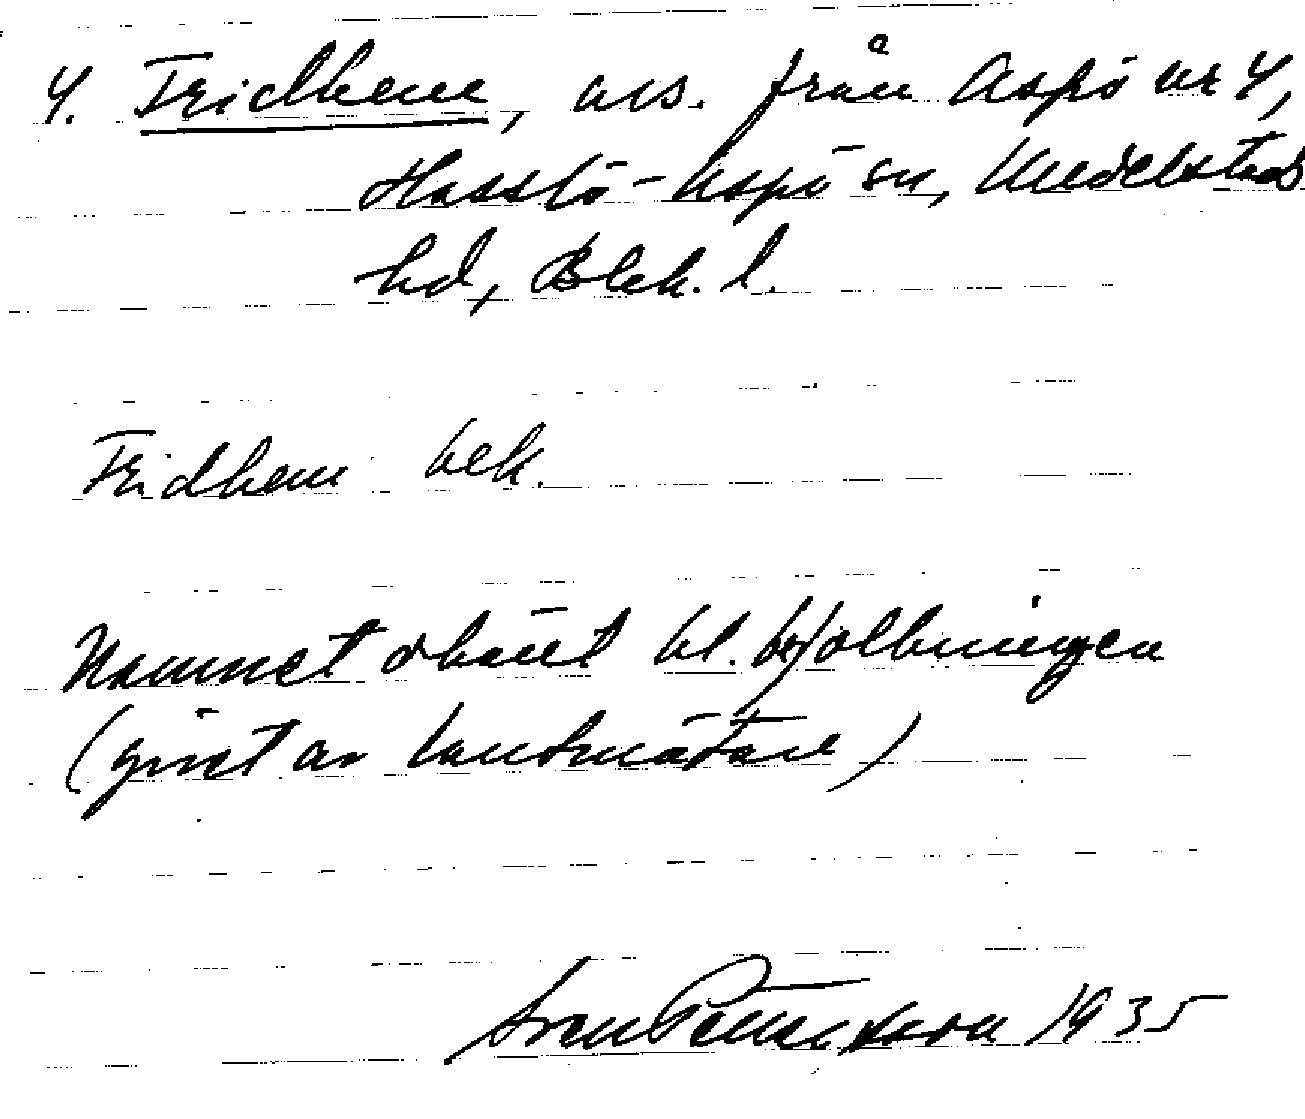 4. Fridhem, avs. från Aspö nr 4,
Hasslö-Aspö sn, Medelstads
hd, Blek. l.
Fridhem bek.
Namnet okänt bl. befolkningen
(givet av lantmätare)
Sven Petersson 1935